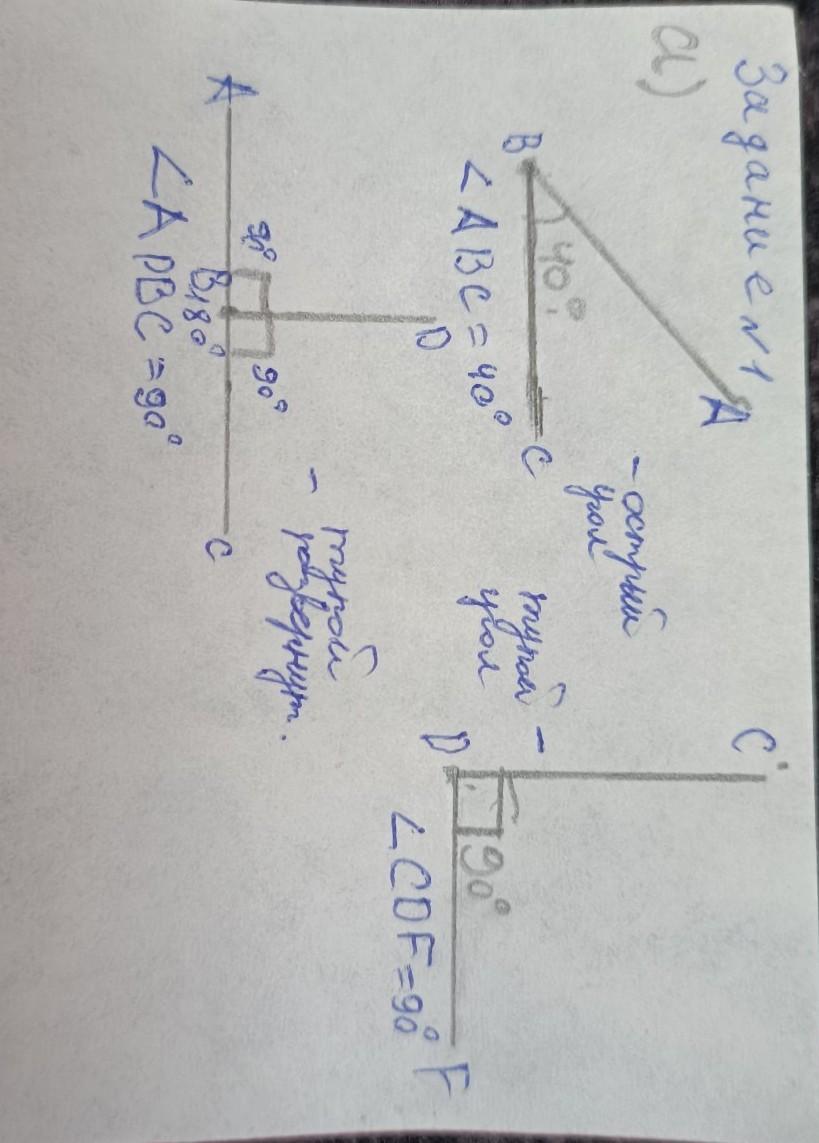 Задание №1
а)
A
C
- острый
угол
B
40°
C
∠ABC = 40°
тупой -
угол
D
90°
F
∠CDF = 90°
D
90°
90°
A
B
180°
C
∠ADBC = 90°
- тупой
развернут.